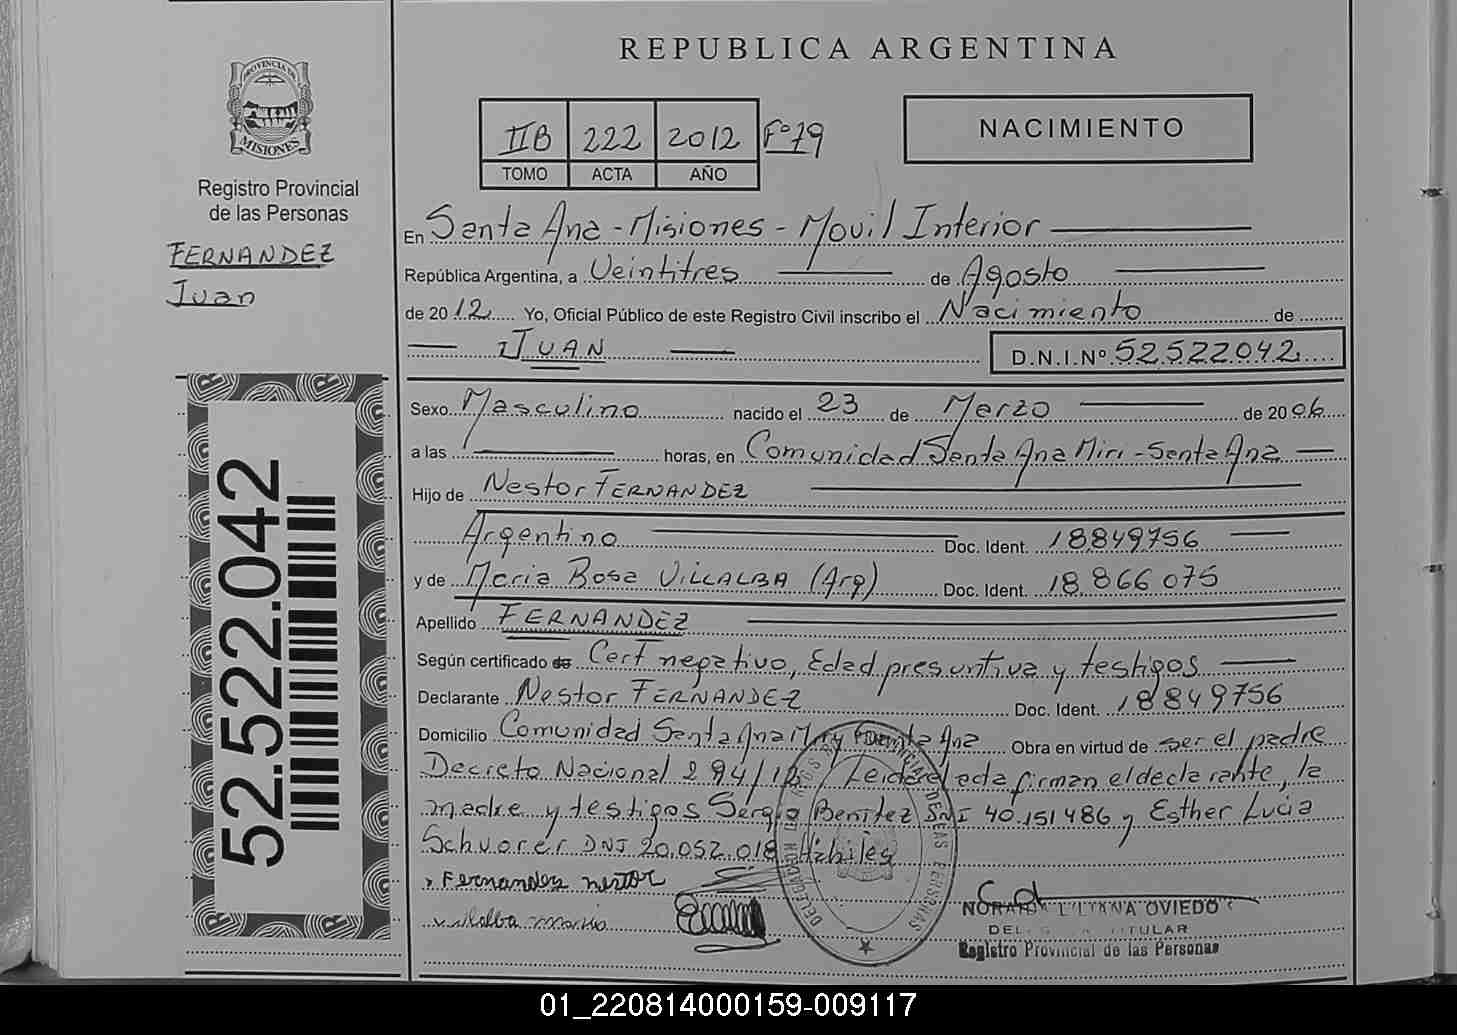 REPUBLICA ARGENTINA
PROVINCIA DE
MISIONES
Registro Provincial
de las Personas
FERNANDEZ
Juan
IIB 222 2012 Fº 79
TOMO ACTA AÑO
NACIMIENTO
En Santa Ana - Misiones - Movil Interior
República Argentina, a Veintitres de Agosto
de 2012 Yo, Oficial Público de este Registro Civil inscribo el Nacimiento de
JUAN D.N.I.Nº 52522042
Sexo Masculino nacido el 23 de Marzo de 2006
a las horas, en Comunidad Santa Ana Miri - Santa Ana
Hijo de Nestor FERNANDEZ
Argentino Doc. Ident. 18849756
y de Maria Rosa VILLALBA (Arg) Doc. Ident. 18866075
Apellido FERNANDEZ
Según certificado de Cert negativo, Edad presuntiva y testigos
Declarante Nestor FERNANDEZ Doc. Ident. 18849756
Domicilio Comunidad Santa Ana Miri Santa Ana Obra en virtud de ser el padre
Decreto Nacional 294/12 Leida el acta firman el declarante, la
madre y testigos Sergio Benitez DNI 40.151486 y Esther Lucia
Schvorer DNI 20.052.018 Hábiles
Fernandez nestor
villalba maria
NORA LILIANA OVIEDO
TITULAR
Registro Provincial de las Personas
52.522.042
01_220814000159-009117